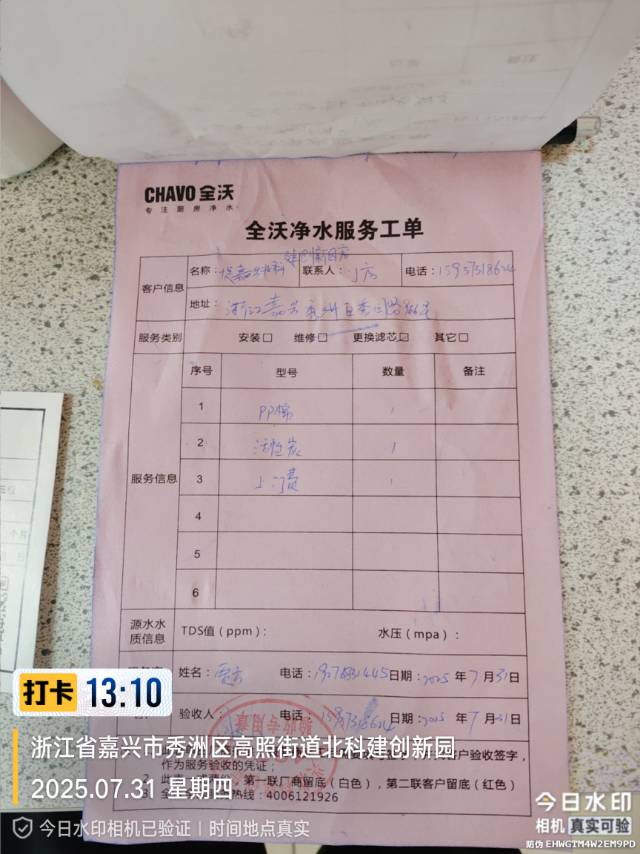 CHAVO 全沃
专注厨房净水
全沃净水服务工单
客户信息
名称:
联系人:
电话:
地址: 浙江嘉兴秀洲区
服务类别 安装□ 维修□ 更换滤芯□ 其它□
服务信息
序号 型号 数量 备注
1 PP棉 1
2 活性炭 1
3 上门费 1
4
5
6
源水水质信息 TDS值（ppm）: 水压（mpa）:
姓名: 电话: 日期: 2025 年 7 月 31 日
验收人: 电话: 日期: 2025 年 7 月 31 日
户验收签字，
作为服务验收的凭证;
第一联厂商留底(白色)，第二联客户留底(红色)
热线: 4006121926
打卡 13:10
浙江省嘉兴市秀洲区高照街道北科建创新园
2025.07.31 星期四
今日水印相机已验证 | 时间地点真实
今日水印
相机 真实可验
防伪 EHWGTM4W2EM9PD